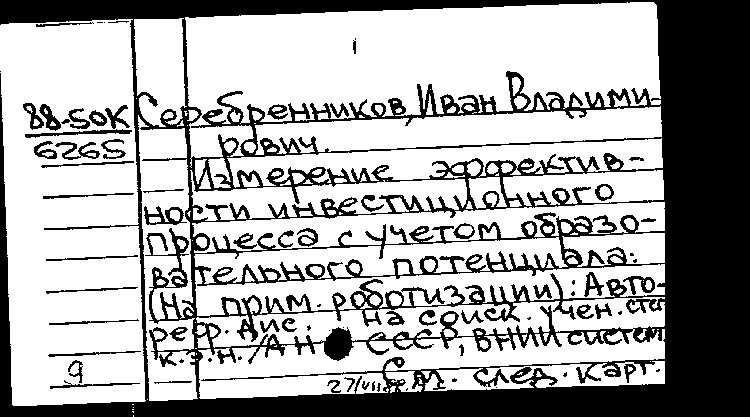 88-50К Серебренников, Иван Владими-
6265 рович.
Измерение эффектив-
ности инвестиционного
процесса с учетом образо-
вательного потенциала:
(На прим. роботизации): Авто-
реф. дис. на соиск. учен. степ
к.э.н. / АН СССР, ВНИИ систем.
9 См. след. карт.